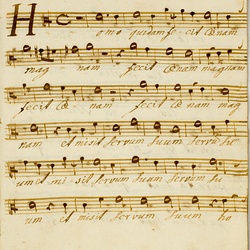 Homo quidam fecit Cœnam
mag nam fecit Cœnam magnam
fecit Cœ nam fecit Cœ nam mag
nam et misit servum suum servu su
um et mi sit servum suum servum su
um et misit servum suum ho